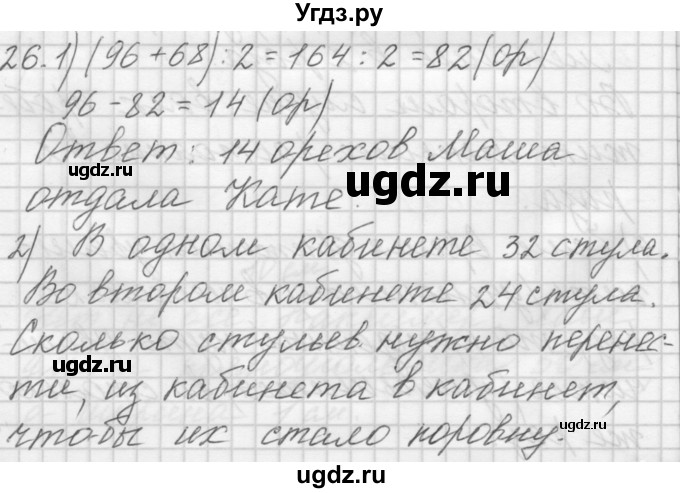 Угдз.ру
26.1) (96+68):2=164:2=82(ор)
96-82=14(ор)
Ответ: 14 орехов Маша
отдала Кате.
ugdz.ru
ugdz.ru
2) В одном кабинете 32 стула.
ugdz.ru
Во втором кабинете 24 стула.
ugdz.ru
Сколько стульев нужно перенес-
ти, из кабинета в кабинет,
ugdz.ru
ugdz.ru
чтобы их стало поровну.
ugdz.ru